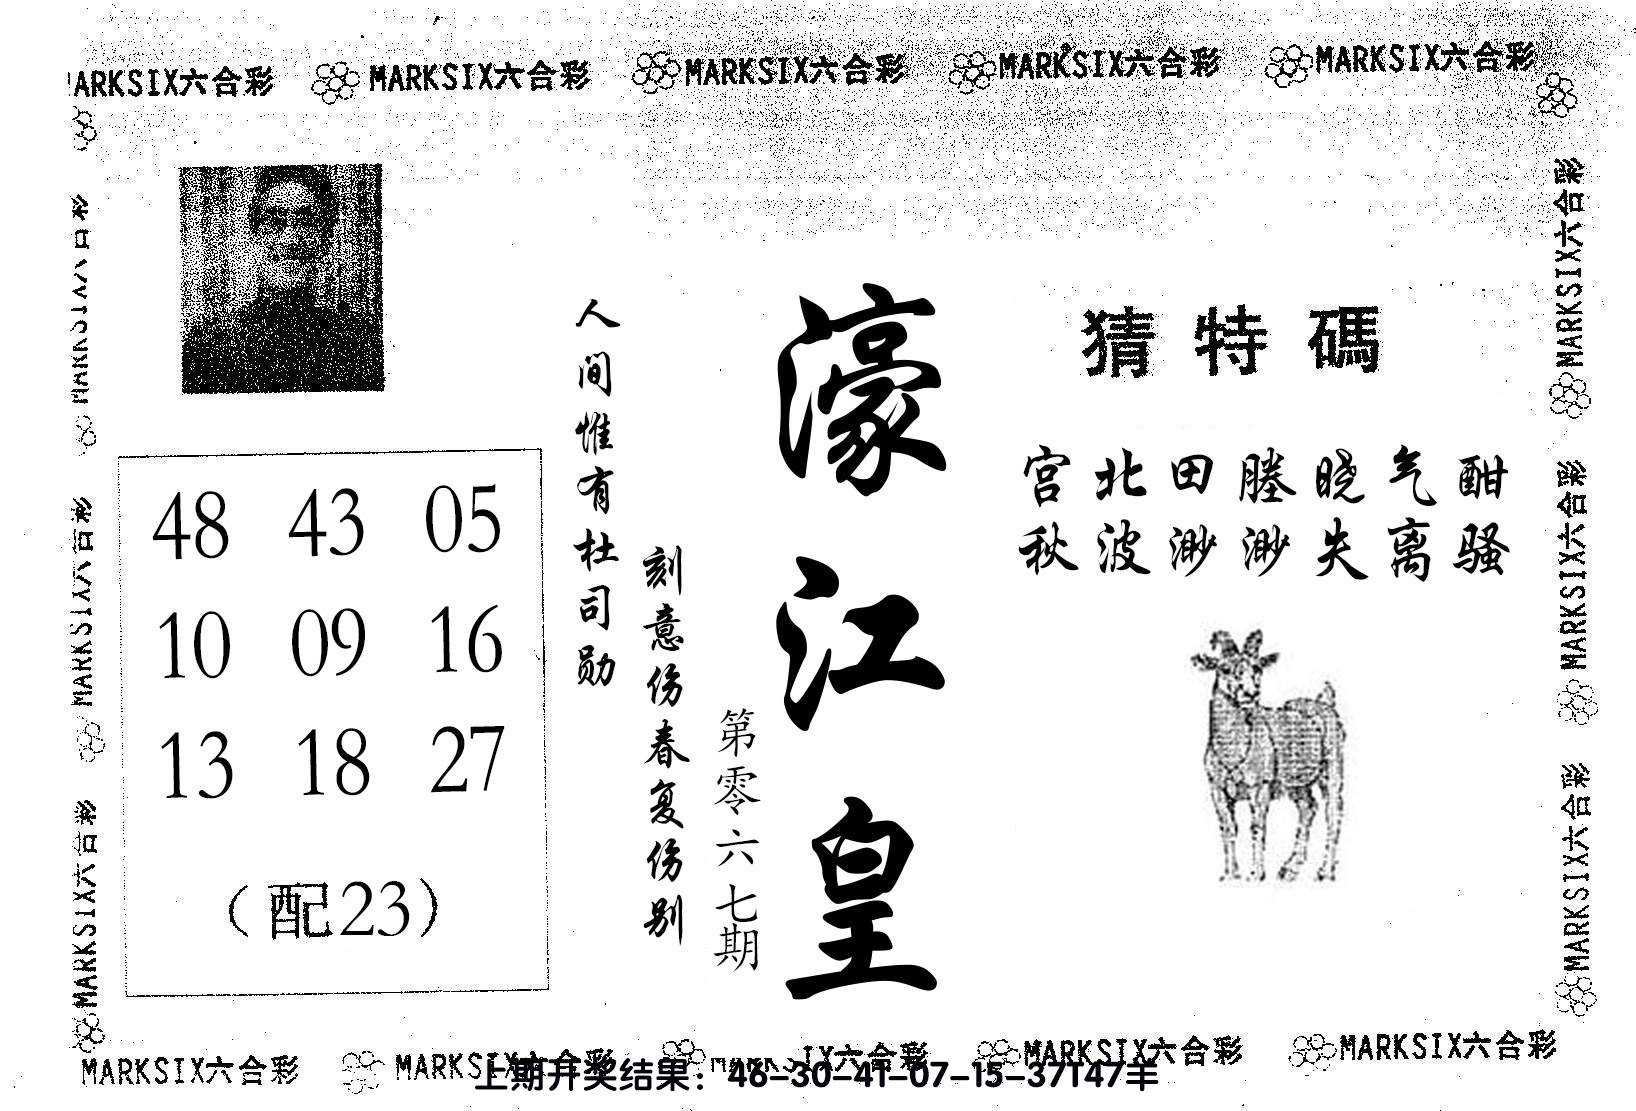 MARKSIX六合彩 MARKSIX六合彩 MARKSIX六合彩 MARKSIX六合彩
MARKSIX六合彩
MARKSIX六合彩
MARKSIX六合彩
MARKSIX六合彩
MARKSIX六合彩
48 43 05
10 09 16
13 18 27
（配23）
人间惟有杜司勋
刻意伤春复伤别
第零六七期
濠江皇
猜特碼
宫北田塍晓气酣
秋波渺渺失离骚
MARKSIX六合彩
MARKSIX六合彩
MARKSIX六合彩
MARKSIX六合彩 MARKSIX六合彩 MARKSIX六合彩 MARKSIX六合彩
上期开奖结果：46-30-41-07-15-37T47羊